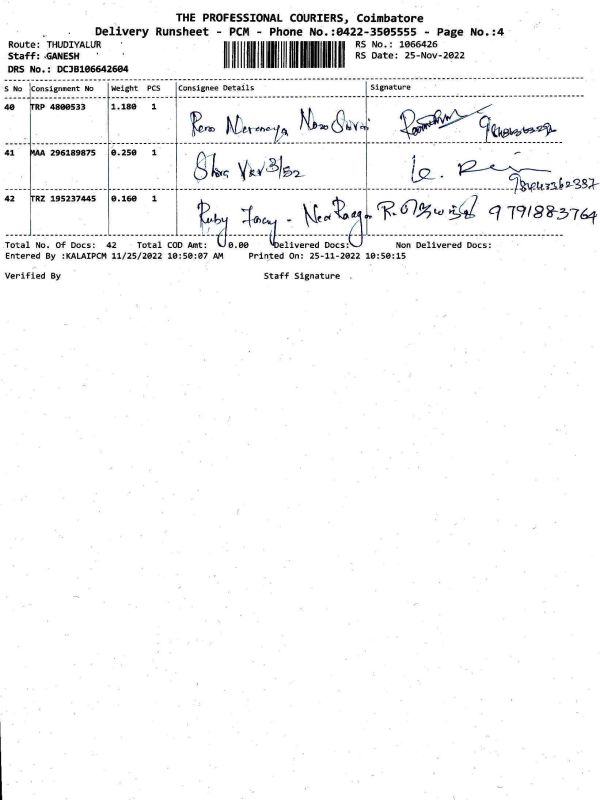 THE PROFESSIONAL COURIERS, Coimbatore
Delivery Runsheet - PCM - Phone No.:0422-3505555 - Page No.:4
Route: THUDIYALUR RS No.: 1066426
Staff: GANESH RS Date: 25-Nov-2022
DRS No.: DCJB106642604
S No Consignment No Weight PCS Consignee Details Signature
40 TRP 4800533 1.180 1
41 MAA 296189875 0.250 1 3/52
42 TRZ 195237445 0.160 1 Ruby 9791883764
Total No. Of Docs: 42 Total COD Amt: 0.00 Delivered Docs: Non Delivered Docs:
Entered By :KALAIPCM 11/25/2022 10:50:07 AM Printed On: 25-11-2022 10:50:15
Verified By Staff Signature